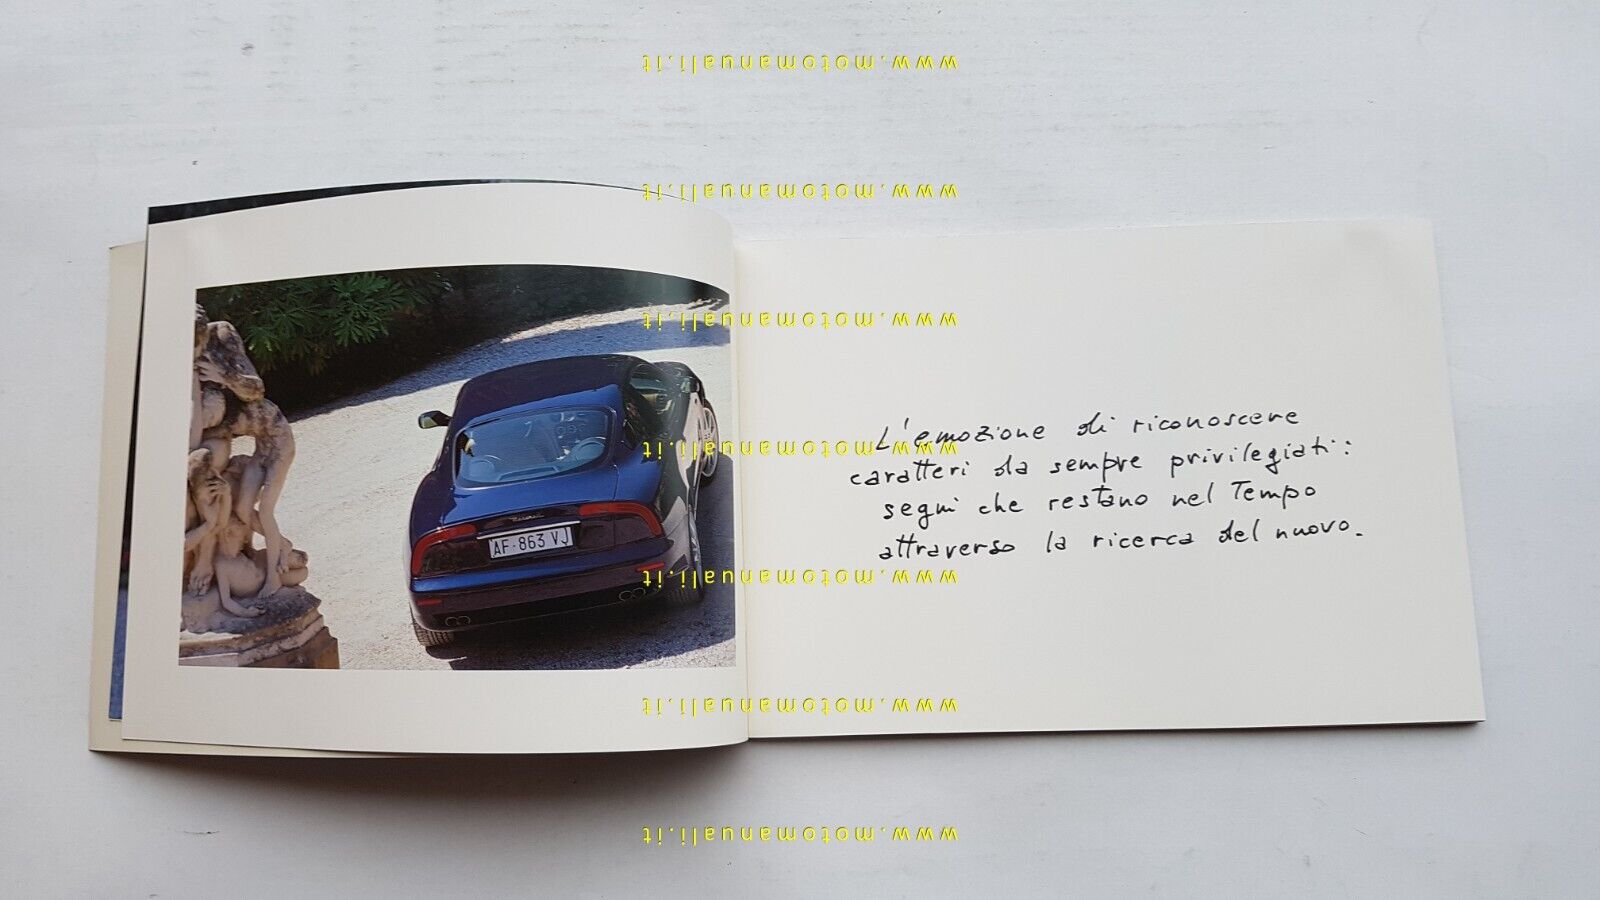 www.motomanuali.it
www.motomanuali.it
www.motomanuali.it
www.motomanuali.it
www.motomanuali.it
www.motomanuali.it
www.motomanuali.it
Maserati
AF·863 VJ
L'emozione di riconoscere
caratteri da sempre privilegiati:
segni che restano nel Tempo
attraverso la ricerca del nuovo.